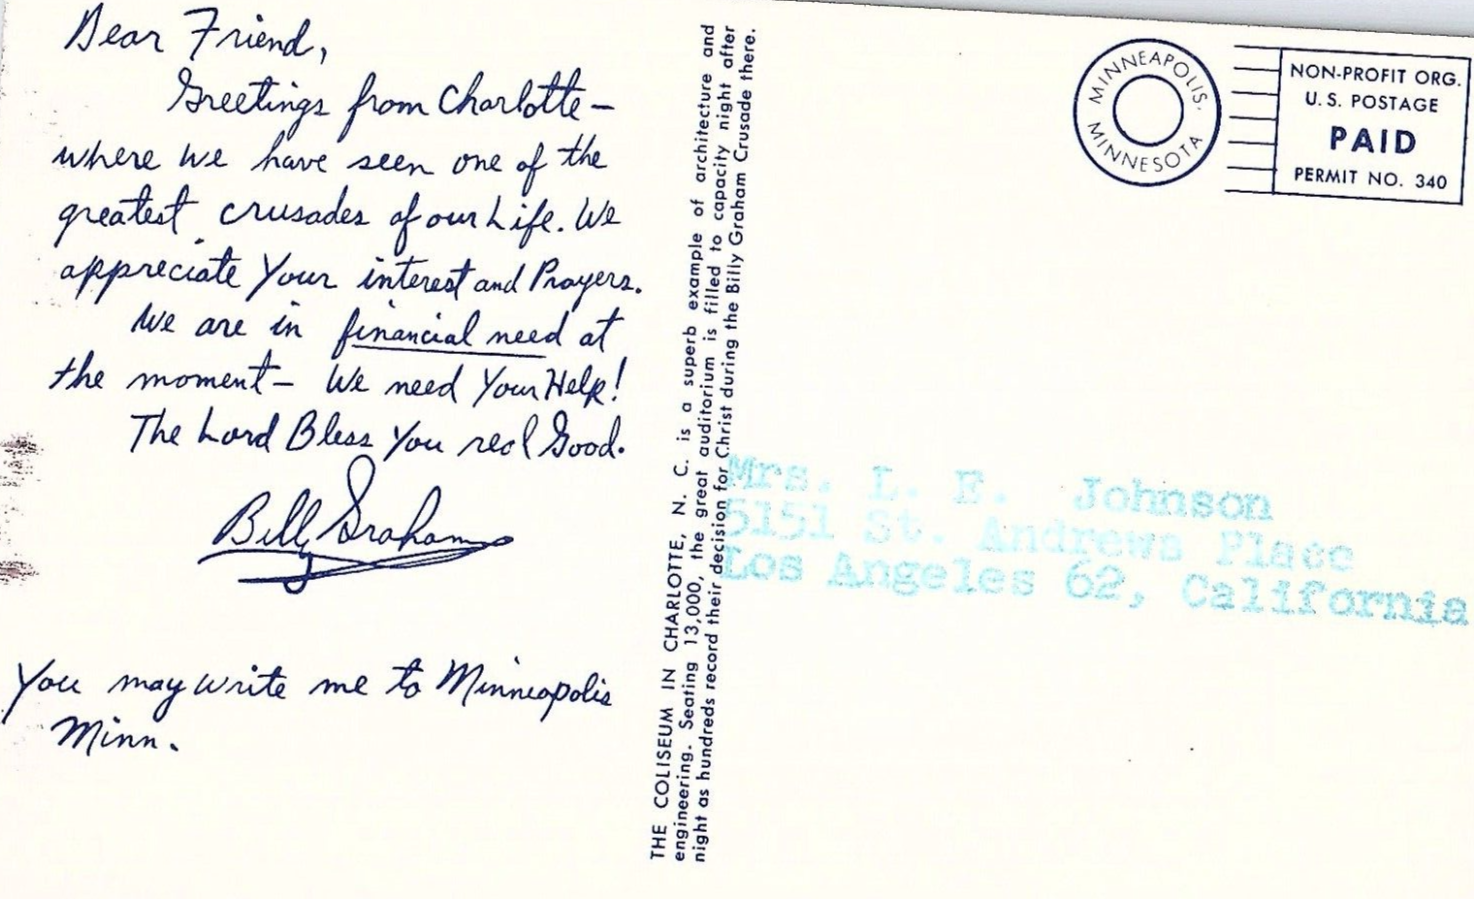 Dear Friend,
Greetings from Charlotte –
where we have seen one of the
greatest crusades of our Life. We
appreciate Your interest and Prayers.
We are in financial need at
the moment – We need Your Help!
The Lord Bless You real Good.
Billy Graham
You may write me to Minneapolis
Minn.
THE COLISEUM IN CHARLOTTE, N. C. is a superb example of architecture and
engineering. Seating 13,000, the great auditorium is filled to capacity night after
night as hundreds record their decision for Christ during the Billy Graham Crusade there.
MINNEAPOLIS,
MINNESOTA
NON-PROFIT ORG.
U. S. POSTAGE
PAID
PERMIT NO. 340
Mrs. L. E. Johnson
5151 St. Andrews Place
Los Angeles 62, California